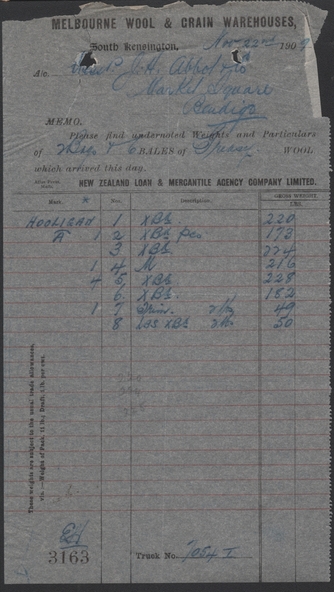 MELBOURNE WOOL & GRAIN WAREHOUSES,
South Kensington, Nov 22nd 190
A/c. J. H. Abbott & Co
Market Square
Bendigo
MEMO.
Please find undernoted Weights and Particulars
of BALES of Greasy WOOL
which arrived this day.
NEW ZEALAND LOAN & MERCANTILE AGENCY COMPANY LIMITED.
Mark. Nos. Description. GROSS WEIGHT. LBS.
HOOLIGAN 1 XBs 220
A 1 2 XBs pcs 173
3 XBs 224
1 4 M 216
4 5 XBs 228
6 XBs 182
1 7 49
8 XBs 50
These weights are subject to the usual trade allowances,
viz.:—Weight of Pack, 11 lb; Draft, 1 lb. per cwt.
3163
Truck No. 1054 I